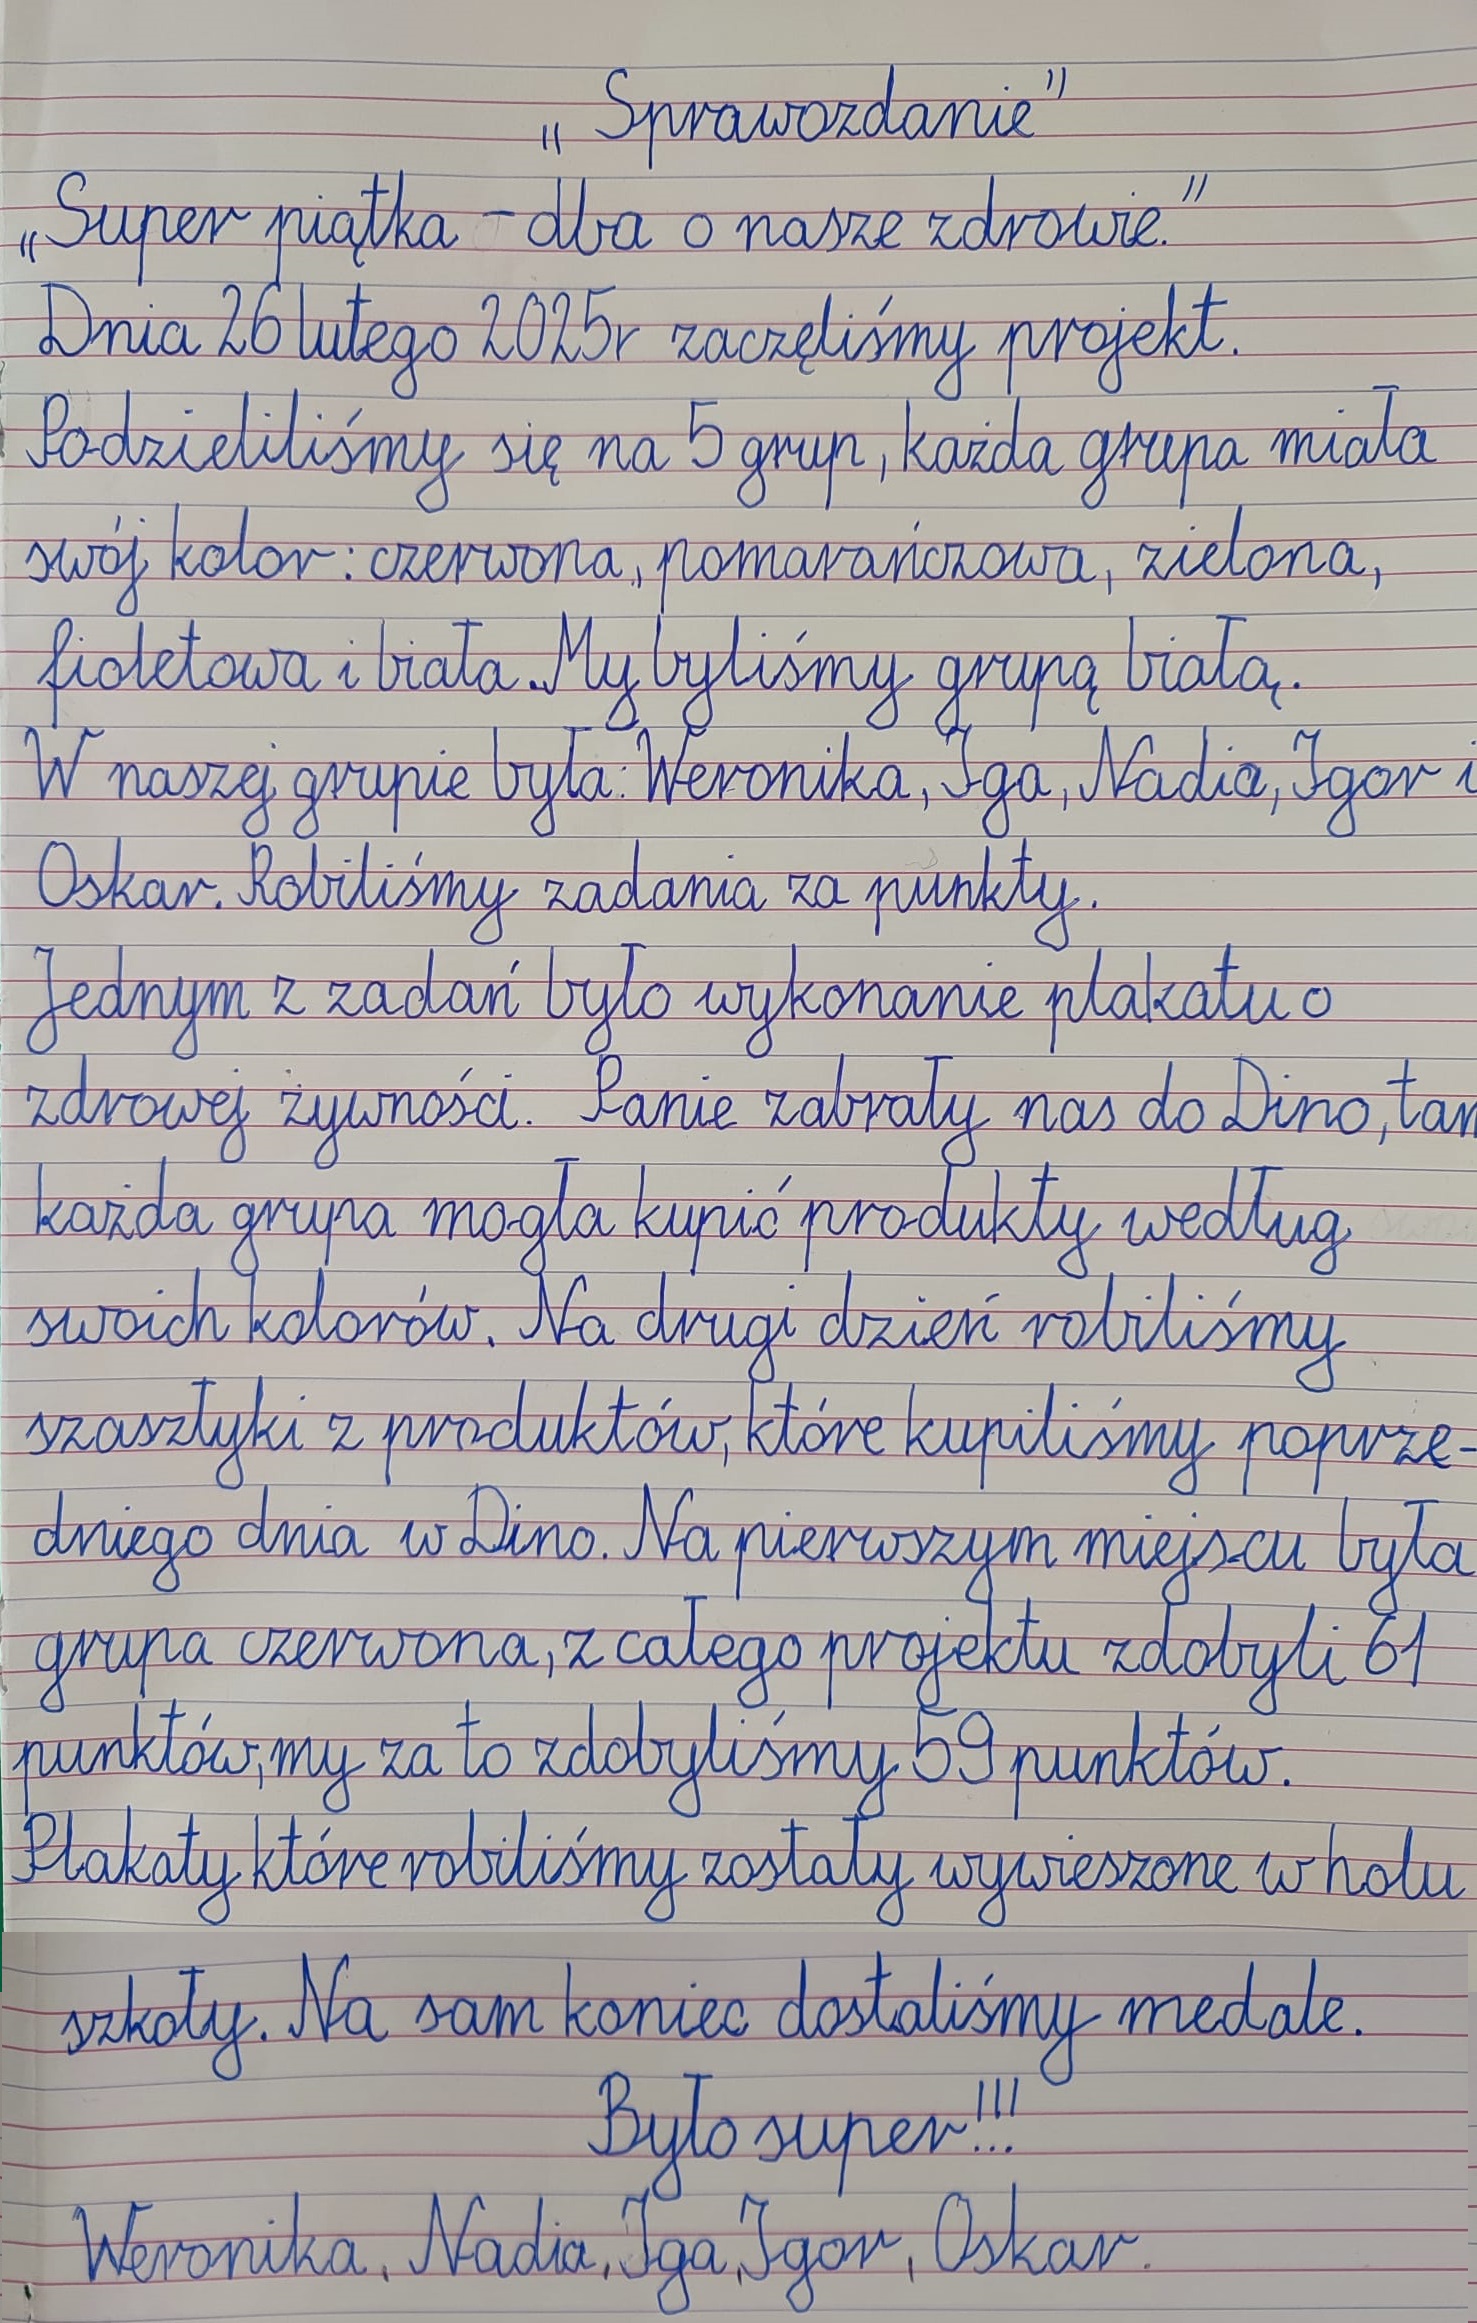 „Sprawozdanie”
„Super piątka - dba o nasze zdrowie.”
Dnia 26 lutego 2025r zaczęliśmy projekt.
Podzieliliśmy się na 5 grup, każda grupa miała
swój kolor: czerwona, pomarańczowa, zielona,
fioletowa i biała. My byliśmy grupą białą.
W naszej grupie była: Weronika, Iga, Nadia, Igor i
Oskar. Robiliśmy zadania za punkty.
Jednym z zadań było wykonanie plakatu o
zdrowej żywności. Panie zabrały nas do Dino, tam
każda grupa mogła kupić produkty według
swoich kolorów. Na drugi dzień robiliśmy
szasztyki z produktów, które kupiliśmy poprze-
dniego dnia w Dino. Na pierwszym miejscu była
grupa czerwona, z całego projektu zdobyli 61
punktów, my za to zdobyliśmy 59 punktów.
Plakaty które robiliśmy zostały wywieszone w holu
szkoły. Na sam koniec dostaliśmy medale.
Było super!!!
Weronika, Nadia, Iga, Igor, Oskar.